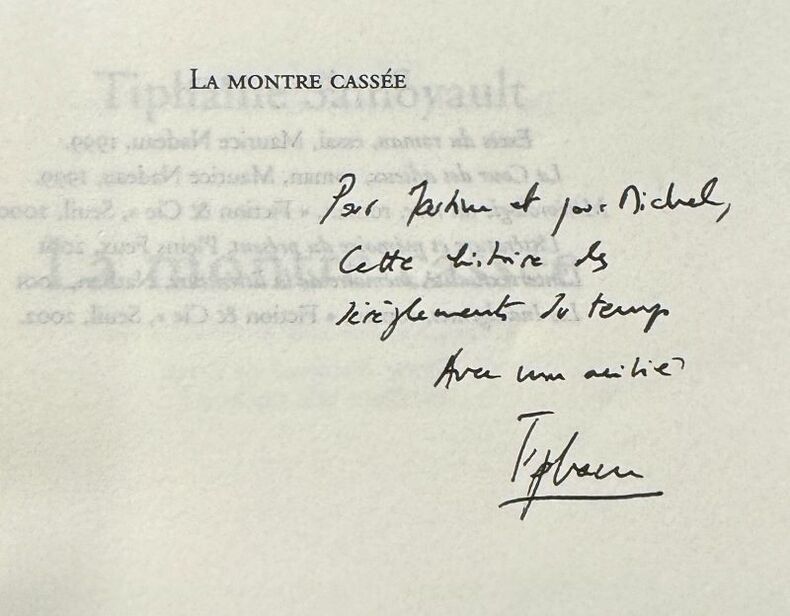 LA MONTRE CASSÉE
Pour Martine et pour Michel,
Cette histoire des
dérèglements du temps
Avec mon amitié
Tiphaine